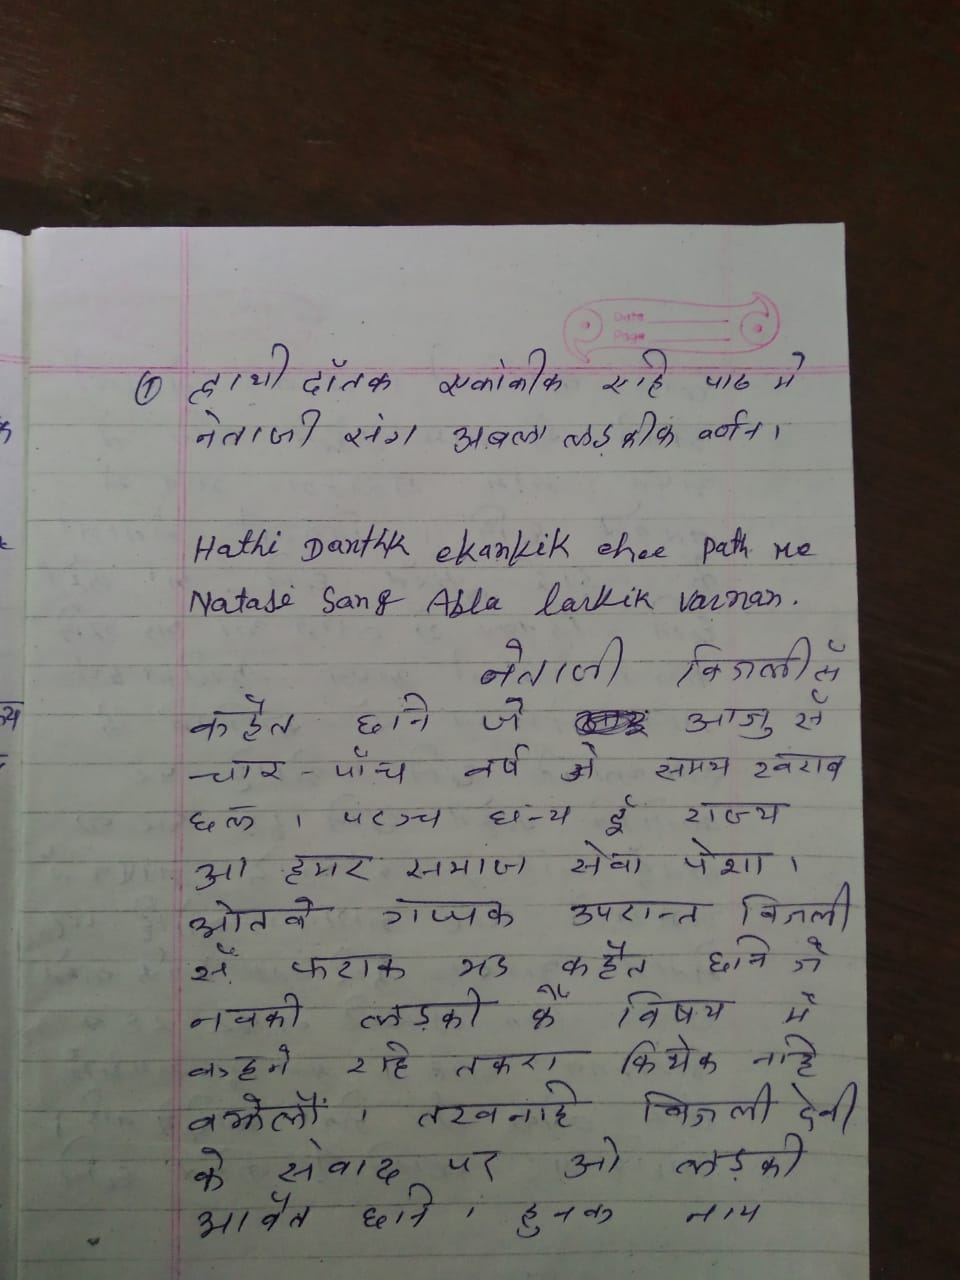 Date
Page
① हाथी दाँतक एकांकीक एहि पाठ मे
नेताजी संग अबला लड़कीक वर्णन।
Hathi Danthk ekankik ehee Path me
Nataji Sang Abla larkik varnan.
नेताजी बिजली सँ
कहैत छनि जे आजु सँ
चार-पाँच वर्ष ओ समय खराब
छल। परञ्च धन्य ई राज्य
आ हमर समाज सेवा पेशा।
ओतबे गप्पक उपरान्त बिजली
सँ फराक भऽ कहैत छनि जे
नवकी लड़की के विषय मे
कहने रहि तकरा कियेक नहि
बजेलौं। तखनहि बिजली देवी
के संवाद पर ओ लड़की
आबैत छनि। हुनक नाम